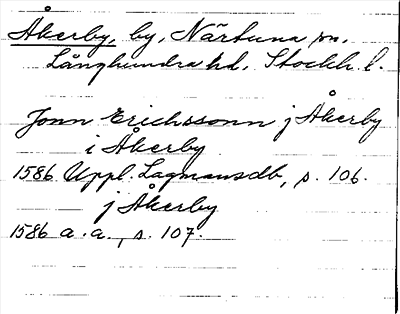 Åkerby, by, Närtuna sn.
Långhundra hd, Stockh. l.
Jonn Erichssonn j Åkerby
i Åkerby
1586 Uppl. Lagmansdb, s. 106.
j Åkerby
1586 a. a., s. 107.